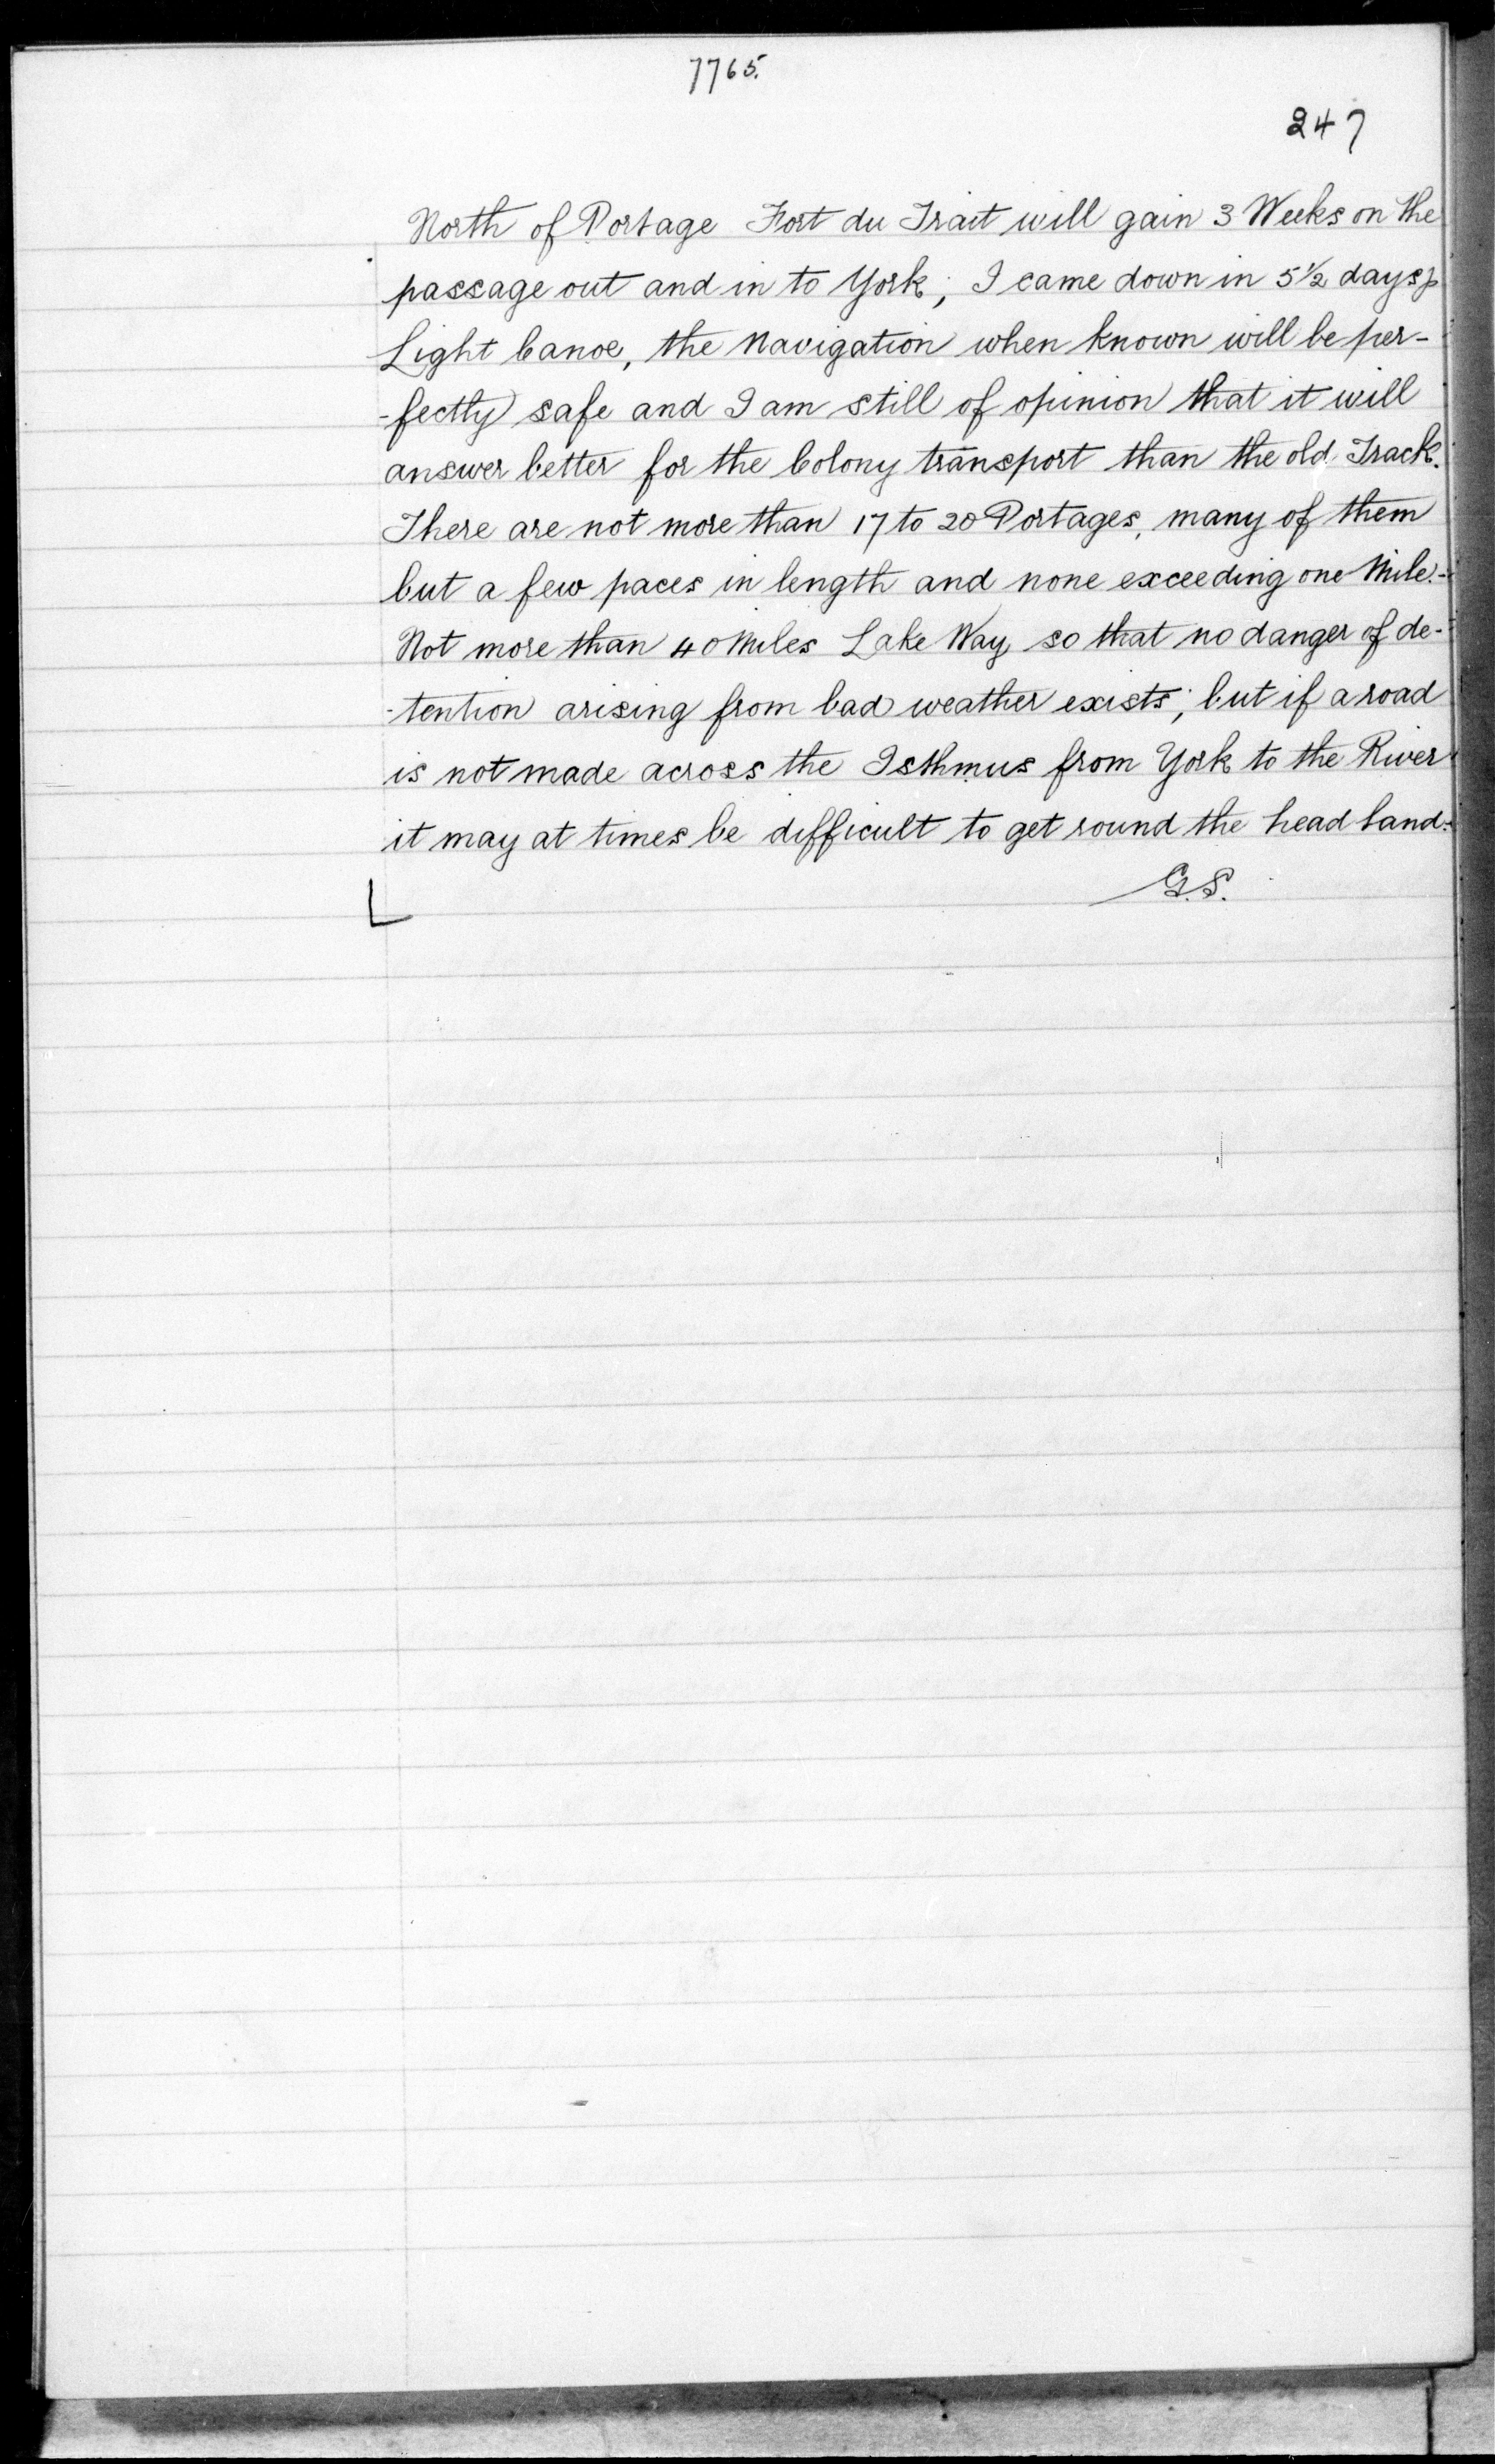 7765.
247
North of Portage Fort du Trait will gain 3 Weeks on the
passage out and in to York; I came down in 5½ days p
Light Canoe, the Navigation when known will be per-
-fectly safe and I am still of opinion that it will
answer better for the Colony transport than the old Track.
There are not more than 17 to 20 Portages, many of them
but a few paces in length and none exceeding one Mile.-
Not more than 40 Miles Lake Way, so that no danger of de-
-tention arising from bad weather exists; but if a road
is not made across the Isthmus from York to the River
it may at times be difficult to get round the head land.
G.S.